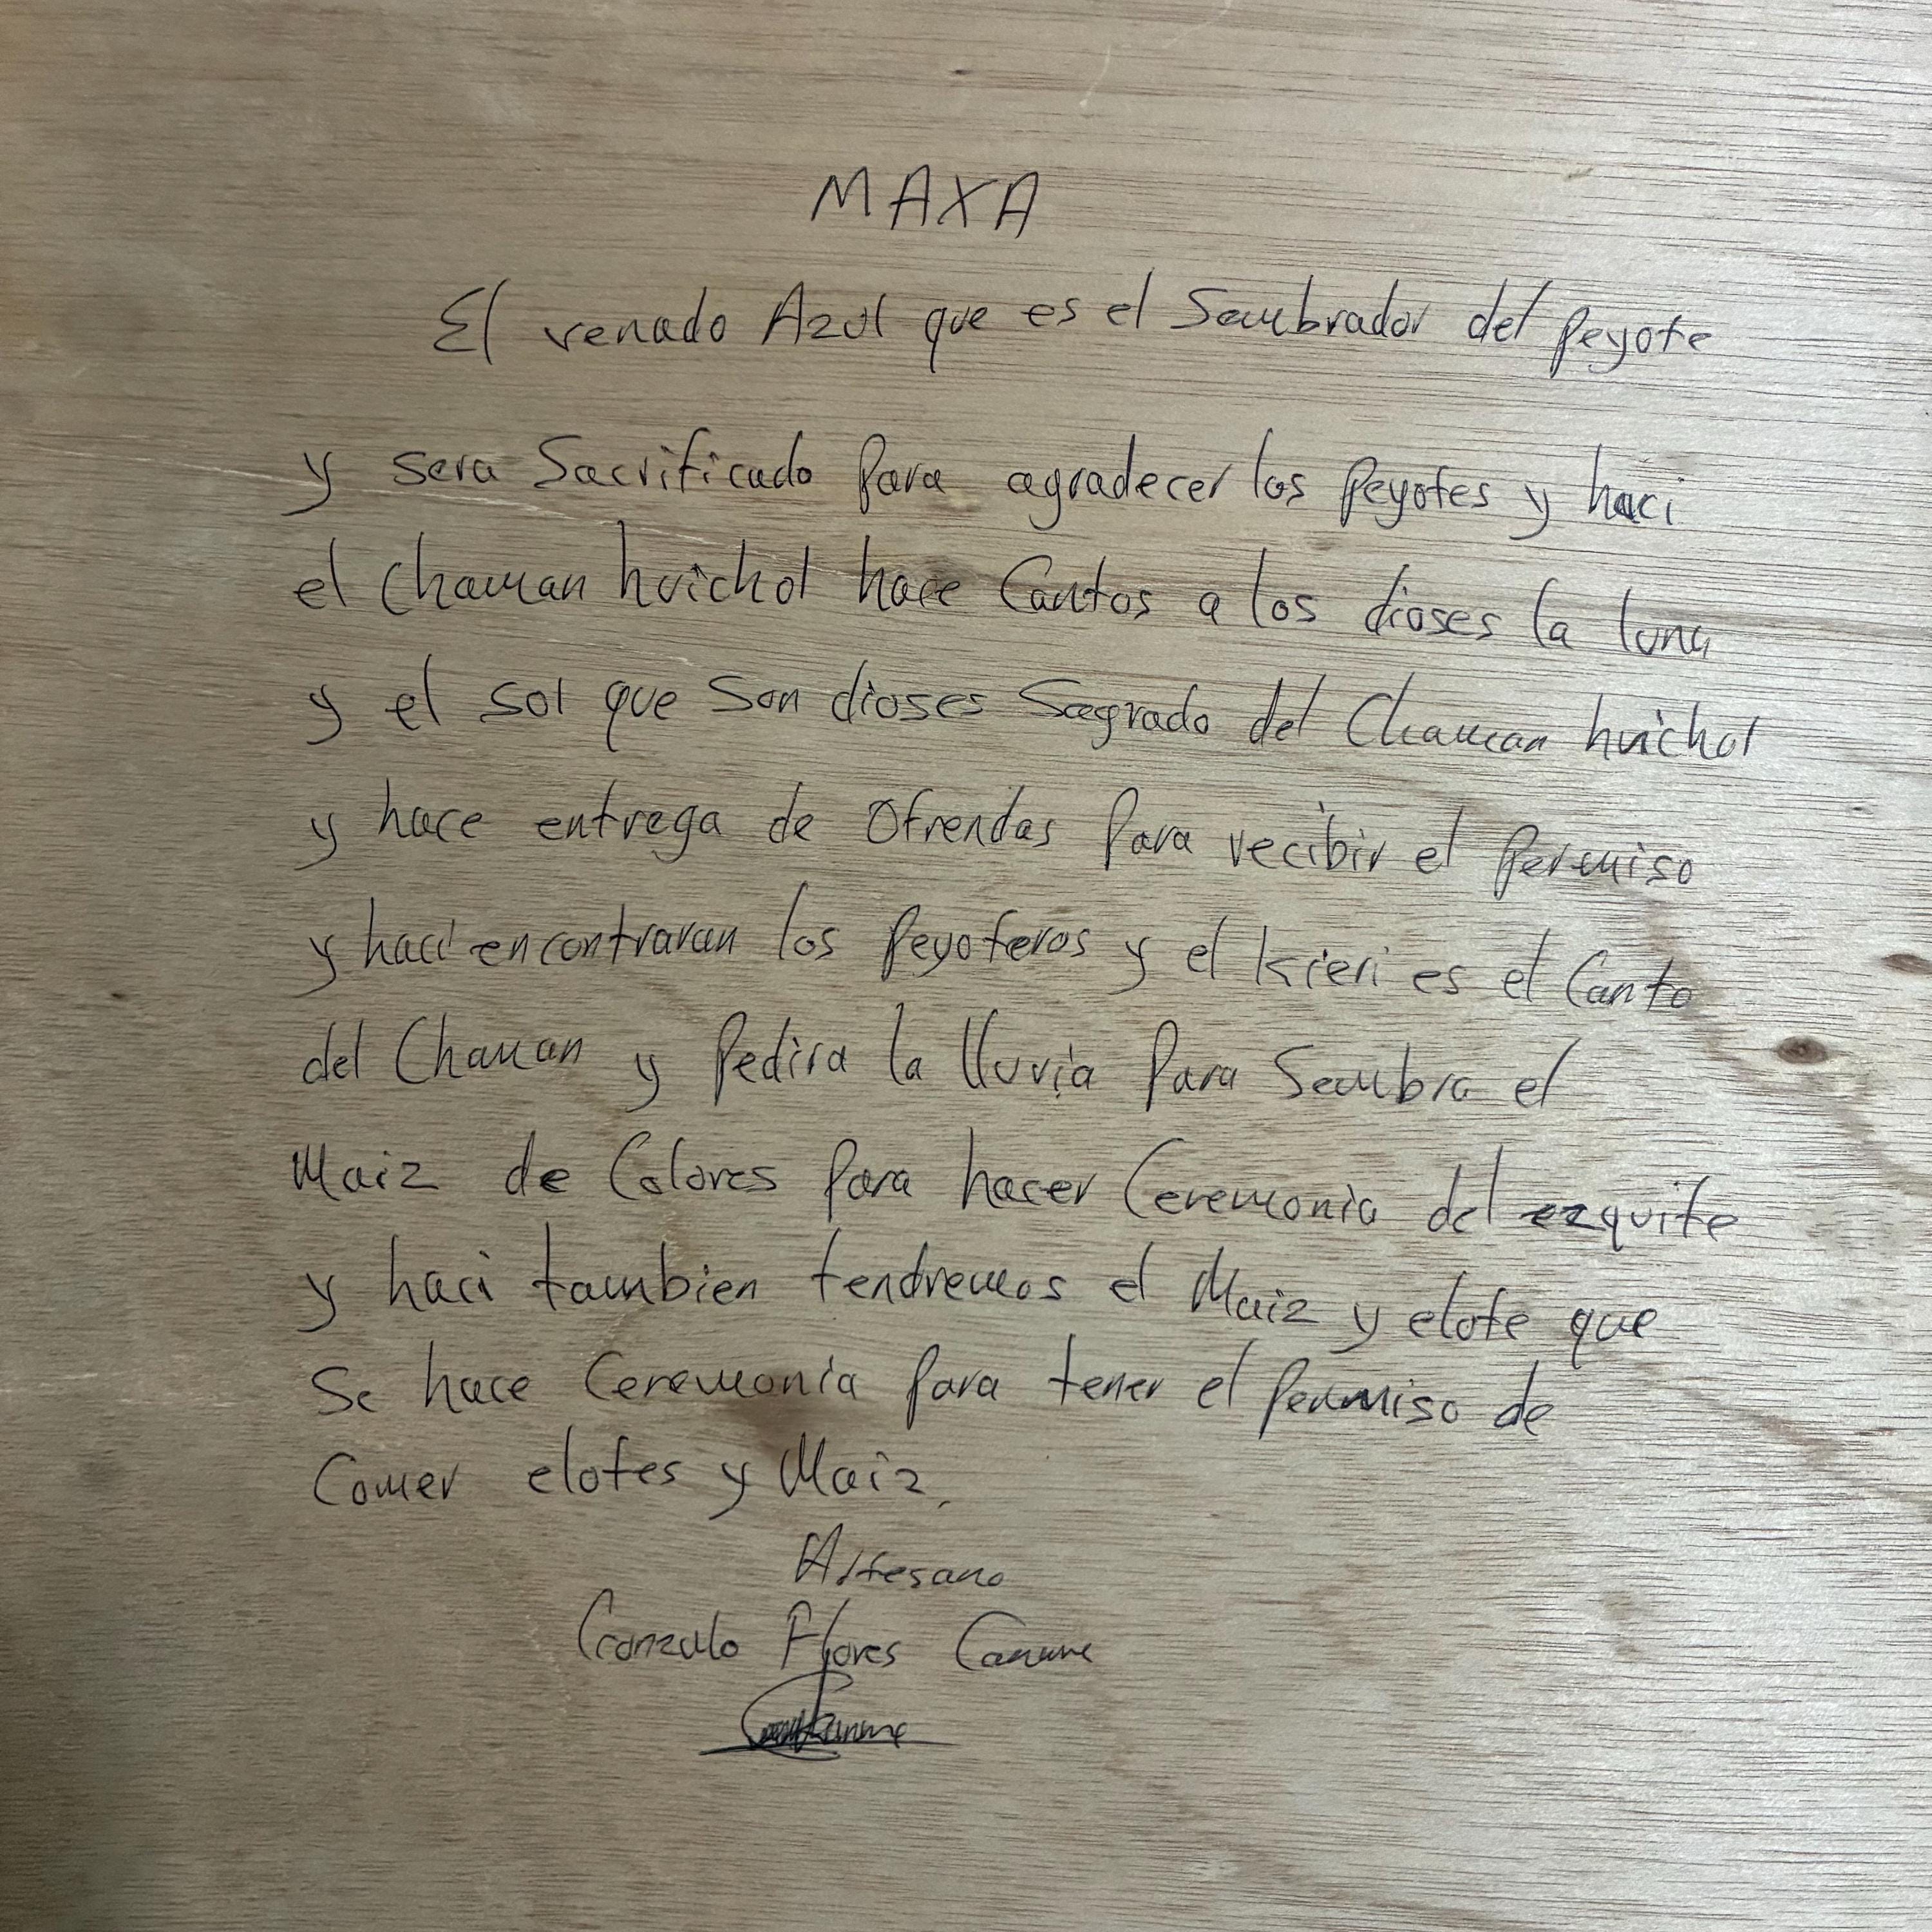 MAXA
El venado Azul que es el Sembrador del Peyote
y sera Sacrificado Para agradecer los Peyotes y haci
el Chaman huichol hace Cantos a los dioses la luna
y el sol que son dioses Sagrado del Chaman huichol
y hace entrega de Ofrendas Para recibir el Permiso
y haci encontraran los Peyoteros y el kieri es el Canto
del Chaman y Pedira la lluvia Para Sembra el
Maiz de Colores Para hacer Ceremonia del ezquite
y haci tambien tendremos el Maiz y elote que
Se hace Ceremonia Para tener el Permiso de
Comer elotes y Maiz.
Artesano
Gonzalo Flores